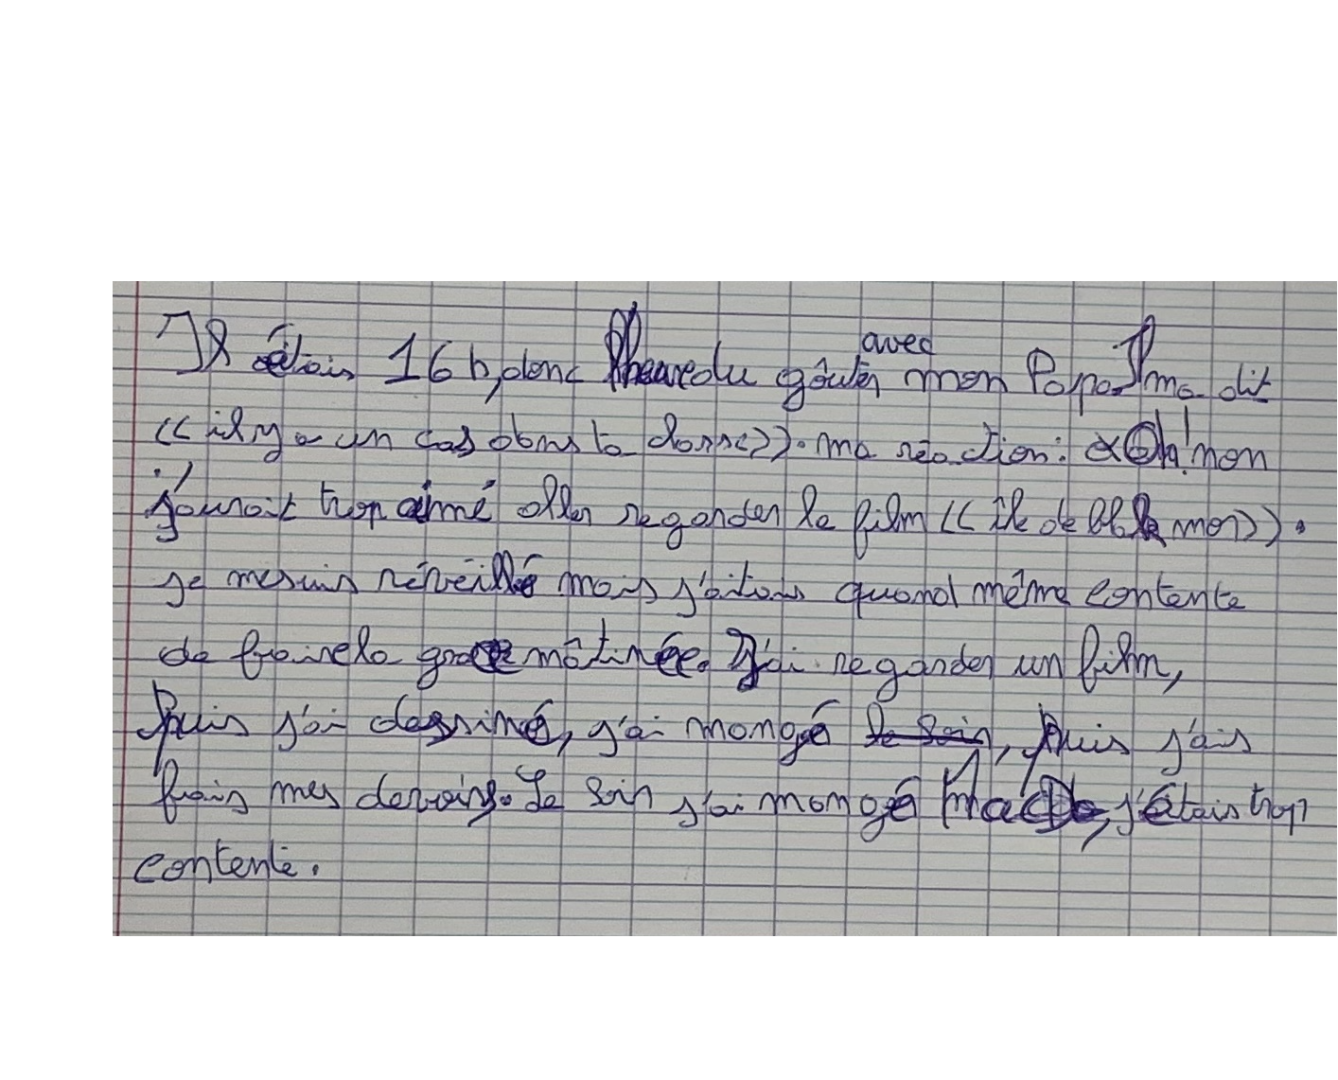 Il étais 16 h, donc l'heure du goûter avec mon Papa. Il ma dit
<< il y a un cas dans ta classe >>. ma réaction : « Oh ! non
j'aurait trop aimé aller regarder le film << île de la mer >>.
Je me suis réveillé mais j'étais quand même contente
de faire la grace matinée. J'ai regarder un film,
puis j'ai dessiné, j'ai mangé le soir, puis j'ais
frais mes devoirs. Le soir j'ai mangé MacDo, j'étais trop
contente.